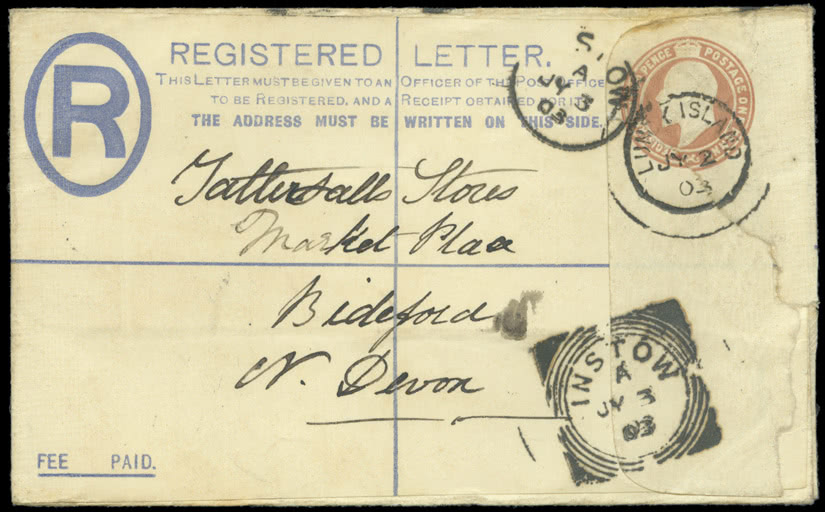 R
REGISTERED LETTER.
THIS LETTER MUST BE GIVEN TO AN OFFICER OF THE POST OFFICE
TO BE REGISTERED, AND A RECEIPT OBTAINED FOR IT.
THE ADDRESS MUST BE WRITTEN ON THIS SIDE.
A
JY 3
03
PENCE POSTAGE ONE
LUNDY ISLAND
JY 2
03
Tattersalls Stores
Market Place
Bideford
N. Devon
INSTOW
A
JY 3
03
FEE PAID.